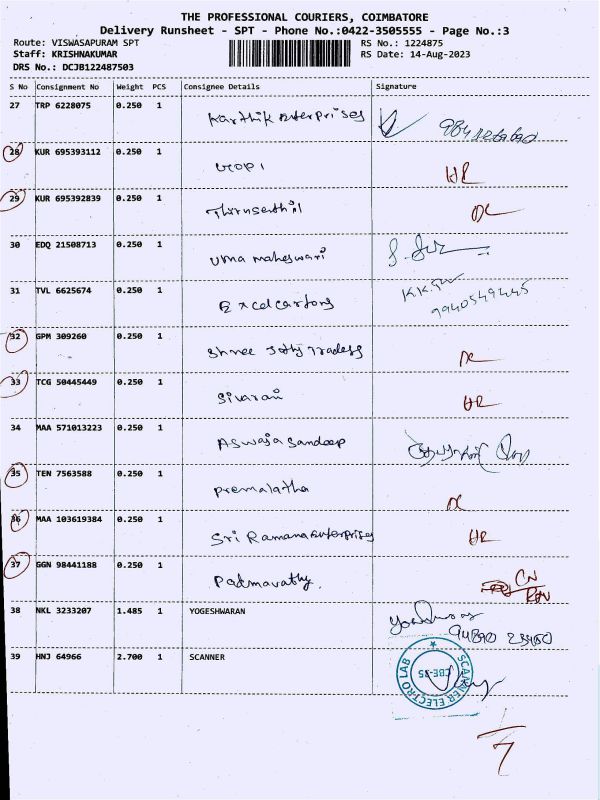 THE PROFESSIONAL COURIERS, COIMBATORE
Delivery Runsheet - SPT - Phone No.:0422-3505555 - Page No.:3
Route: VISWASAPURAM SPT RS No.: 1224875
Staff: KRISHNAKUMAR RS Date: 14-Aug-2023
DRS No.: DCJB122487503
S No Consignment No Weight PCS Consignee Details Signature
27 TRP 6228075 0.250 1 Karthik enterprises
28 KUR 695393112 0.250 1 Gopi HR
29 KUR 695392839 0.250 1 Thirusenthil DC
30 EDQ 21508713 0.250 1 Uma maheswari
31 TVL 6625674 0.250 1 Excelcartons 9940549445
32 GPM 309260 0.250 1 Shree Jothy Traders DC
33 TCG 50445449 0.250 1 Sivaram HR
34 MAA 571013223 0.250 1 Aswaja Sandeep
35 TEN 7563588 0.250 1 Premalatha DC
36 MAA 103619384 0.250 1 Sri Ramana enterprises HR
37 GGN 98441188 0.250 1 Padmavathy CN
38 NKL 3233207 1.485 1 YOGESHWARAN
39 HNJ 64966 2.700 1 SCANNER
SCANNER ELECTRO LAB
CBE-35